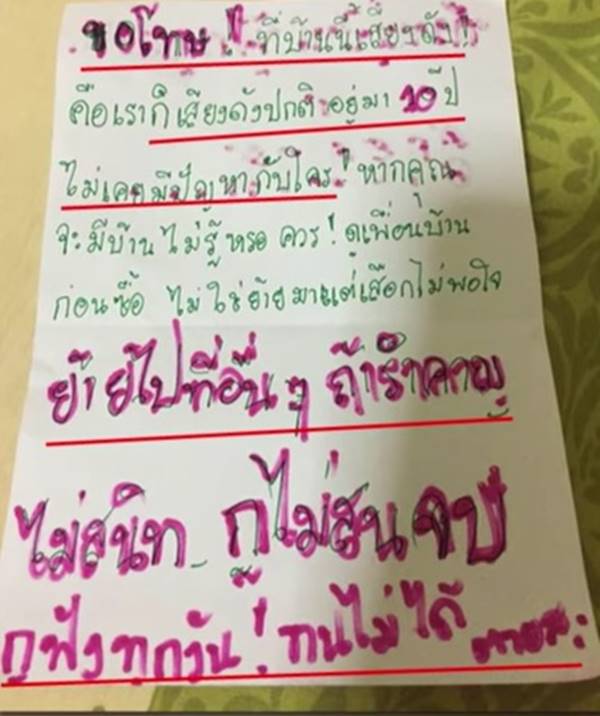 ขอโทษ! ที่บ้านนี้เสียงดัง!
คือเราก็เสียงดังปกติอยู่มา 10 ปี
ไม่เคยมีปัญหากับใคร! หากคุณ
จะมีบ้านไม่รู้หรอ ควร! ดูเพื่อนบ้าน
ก่อนซื้อ ไม่ใช่ย้ายมาแต่เสือกไม่พอใจ
ย้ายไปที่อื่นๆ ถ้ารำคาญ
ไม่สนิท กูไม่สน จบ
กูฟังทุกวัน! ทนไม่ได้